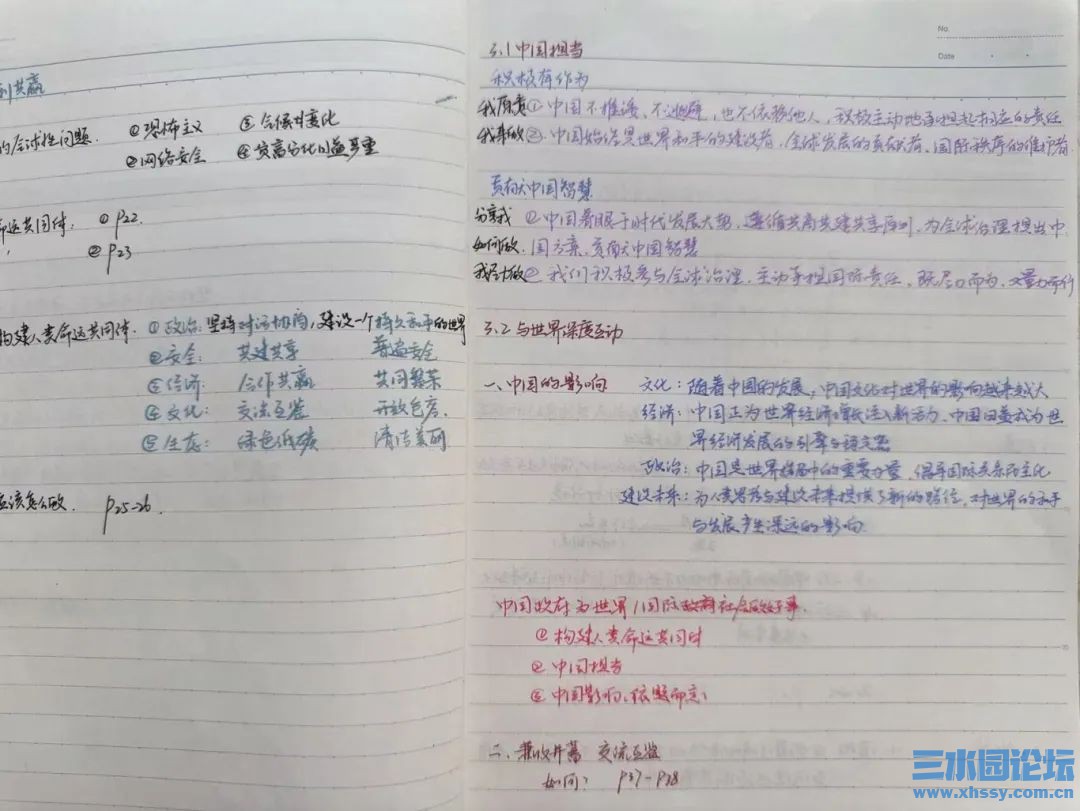 利共赢
的全球性问题. ①恐怖主义 ③气候变化
②网络安全 ④贫富分化日益严重
命运共同体: ①P22.
②P23
构建人类命运共同体. ①政治: 坚持对话协商, 建设一个持久和平的世界
②安全: 共建共享 普遍安全
③经济: 合作共赢 共同繁荣
④文化: 交流互鉴 开放包容.
⑤生态: 绿色低碳 清洁美丽
应该怎么做. P25-26.
No.
Date
3.1 中国担当
积极有作为
① 中国不推诿、不逃避, 也不依赖他人, 积极主动地承担起相应的责任
② 中国始终是世界和平的建设者, 全球发展的贡献者、国际秩序的维护者
贡献中国智慧
① 中国着眼于时代发展大势, 遵循共商共建共享原则, 为全球治理提出中
如何做. 国方案、贡献中国智慧
② 我们积极参与全球治理, 主动承担国际责任, 既尽力而为, 又量力而行
3.2 与世界深度互动
一、中国的影响 文化: 随着中国的发展, 中国文化对世界的影响越来越大
经济: 中国正为世界经济增长注入新活力, 中国日益成为世
界经济发展的引擎与稳定器
政治: 中国是世界格局中的重要力量, 倡导国际关系民主化
建设未来: 为人类思考与建设未来提供了新的路径, 对世界的和平
与发展产生深远的影响.
中国政府为世界/国际社会做好事.
① 构建人类命运共同体
② 中国担当
③ 中国影响, 依题而定;
二、兼收并蓄 交流互鉴
如何? P37-P38
三水园论坛
www.xhssy.com.cn